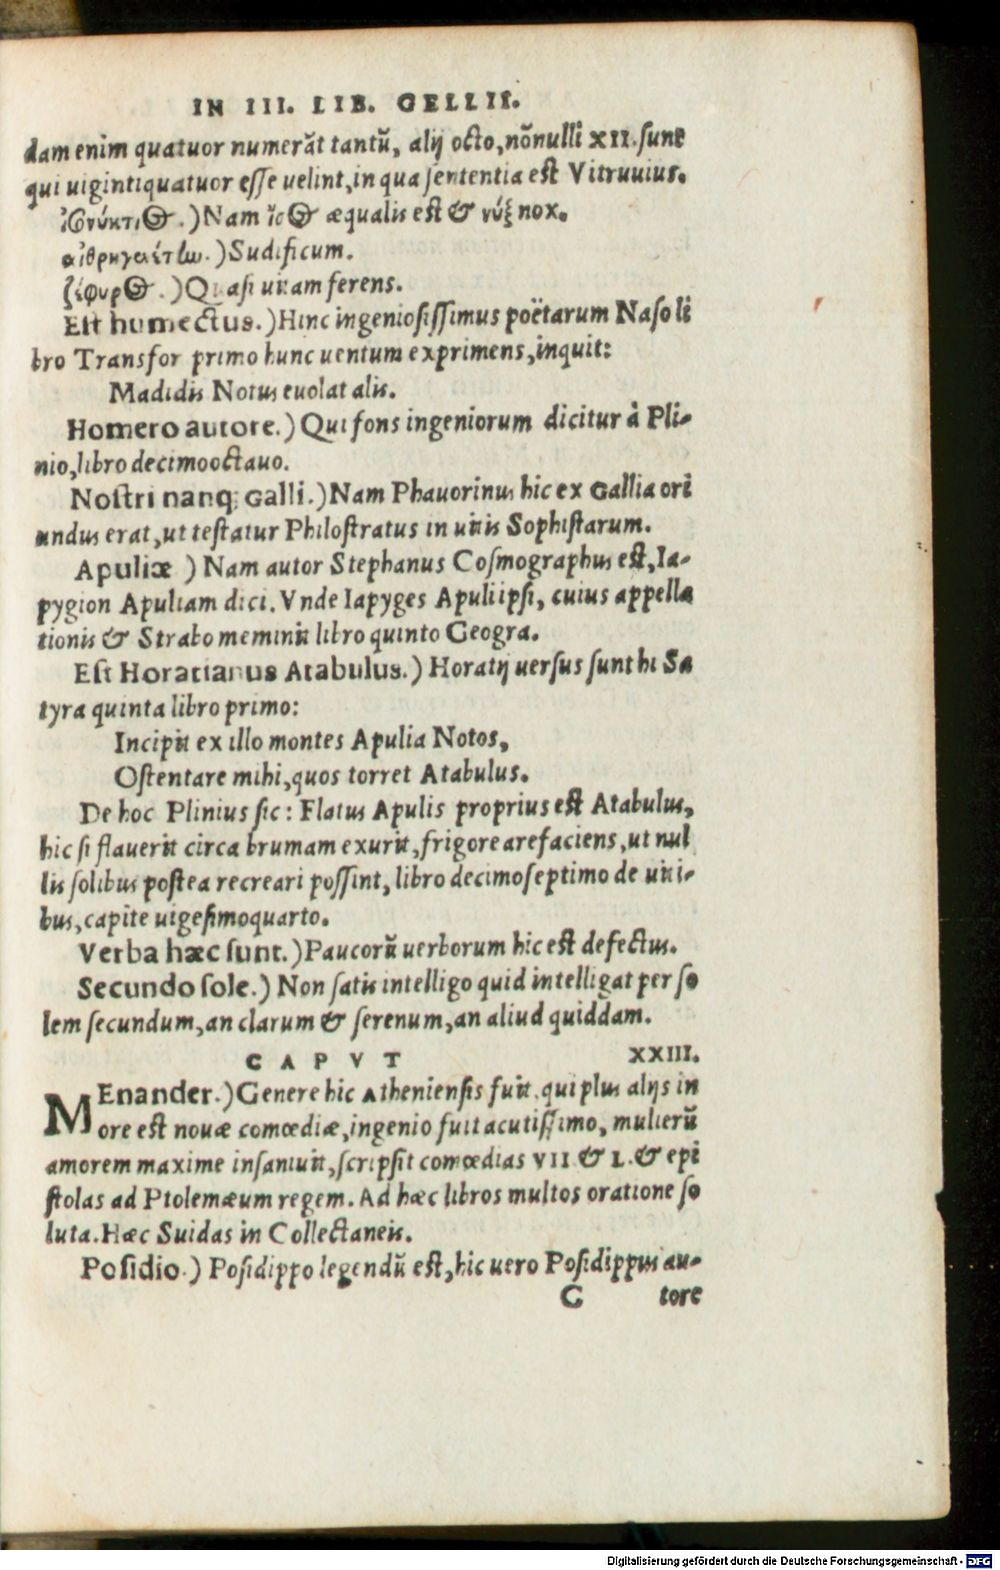 IN III. LIB. GELLII.
dam enim quatuor numerāt tantū, alij octo, nōnulli XII. sunt
qui uigintiquatuor esse uelint, in qua sententia est Vitruuius.
ἰσονύκτιος.) Nam ἴσος æqualis est & νύξ nox.
αἰθρηγενέτῳ.) Sudificum.
ζέφυρος.) Quasi uitam ferens.
Est humectus.) Hinc ingeniosissimus poëtarum Naso li
bro Transfor primo hunc uentum exprimens, inquit:
Madidis Notus euolat alis.
Homero autore.) Qui fons ingeniorum dicitur à Pli-
nio, libro decimooctauo.
Nostri nanq; Galli.) Nam Phauorinus hic ex Gallia ori
undus erat, ut testatur Philostratus in uitis Sophistarum.
Apuliæ ) Nam autor Stephanus Cosmographus est, Ia-
pygion Apuliam dici. Vnde Iapyges Apuli ipsi, cuius appella
tionis & Strabo meminit libro quinto Geogra.
Est Horatianus Atabulus.) Horatij uersus sunt hi Sa
tyra quinta libro primo:
Incipit ex illo montes Apulia Notos,
Ostentare mihi, quos torret Atabulus.
De hoc Plinius sic: Flatus Apulis proprius est Atabulus,
hic si flauerit circa brumam exurit, frigore arefaciens, ut nul
lis solibus postea recreari possint, libro decimoseptimo de uiti-
bus, capite uigesimoquarto.
Verba hæc sunt.) Paucorū uerborum hic est defectus.
Secundo sole.) Non satis intelligo quid intelligat per so
lem secundum, an clarum & serenum, an aliud quiddam.
CAPVT XXIII.
MEnander.) Genere hic Atheniensis fuit. qui plus alijs in
ore est nouæ comœdiæ, ingenio fuit acutissimo, mulierū
amorem maxime insaniuit, scripsit comœdias VII & L. & epi
stolas ad Ptolemæum regem. Ad hæc libros multos oratione so
luta. Hæc Suidas in Collectaneis.
Posidio.) Posidippo legendū est, hic uero Posidippus au-
C tore
Digitalisierung gefördert durch die Deutsche Forschungsgemeinschaft - DFG